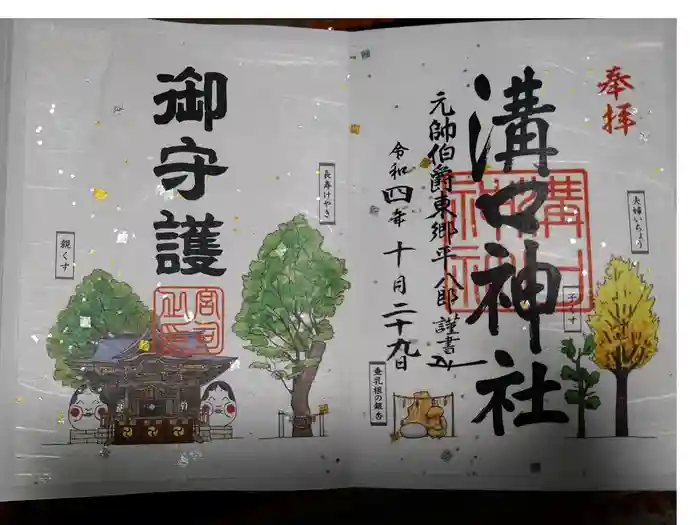 奉拝
溝口神社
元帥伯爵東郷平八郎謹書
令和四年十月二十九日
夫婦いちょう
子くす
垂乳根の銀杏
長寿けやき
御守護
親くす